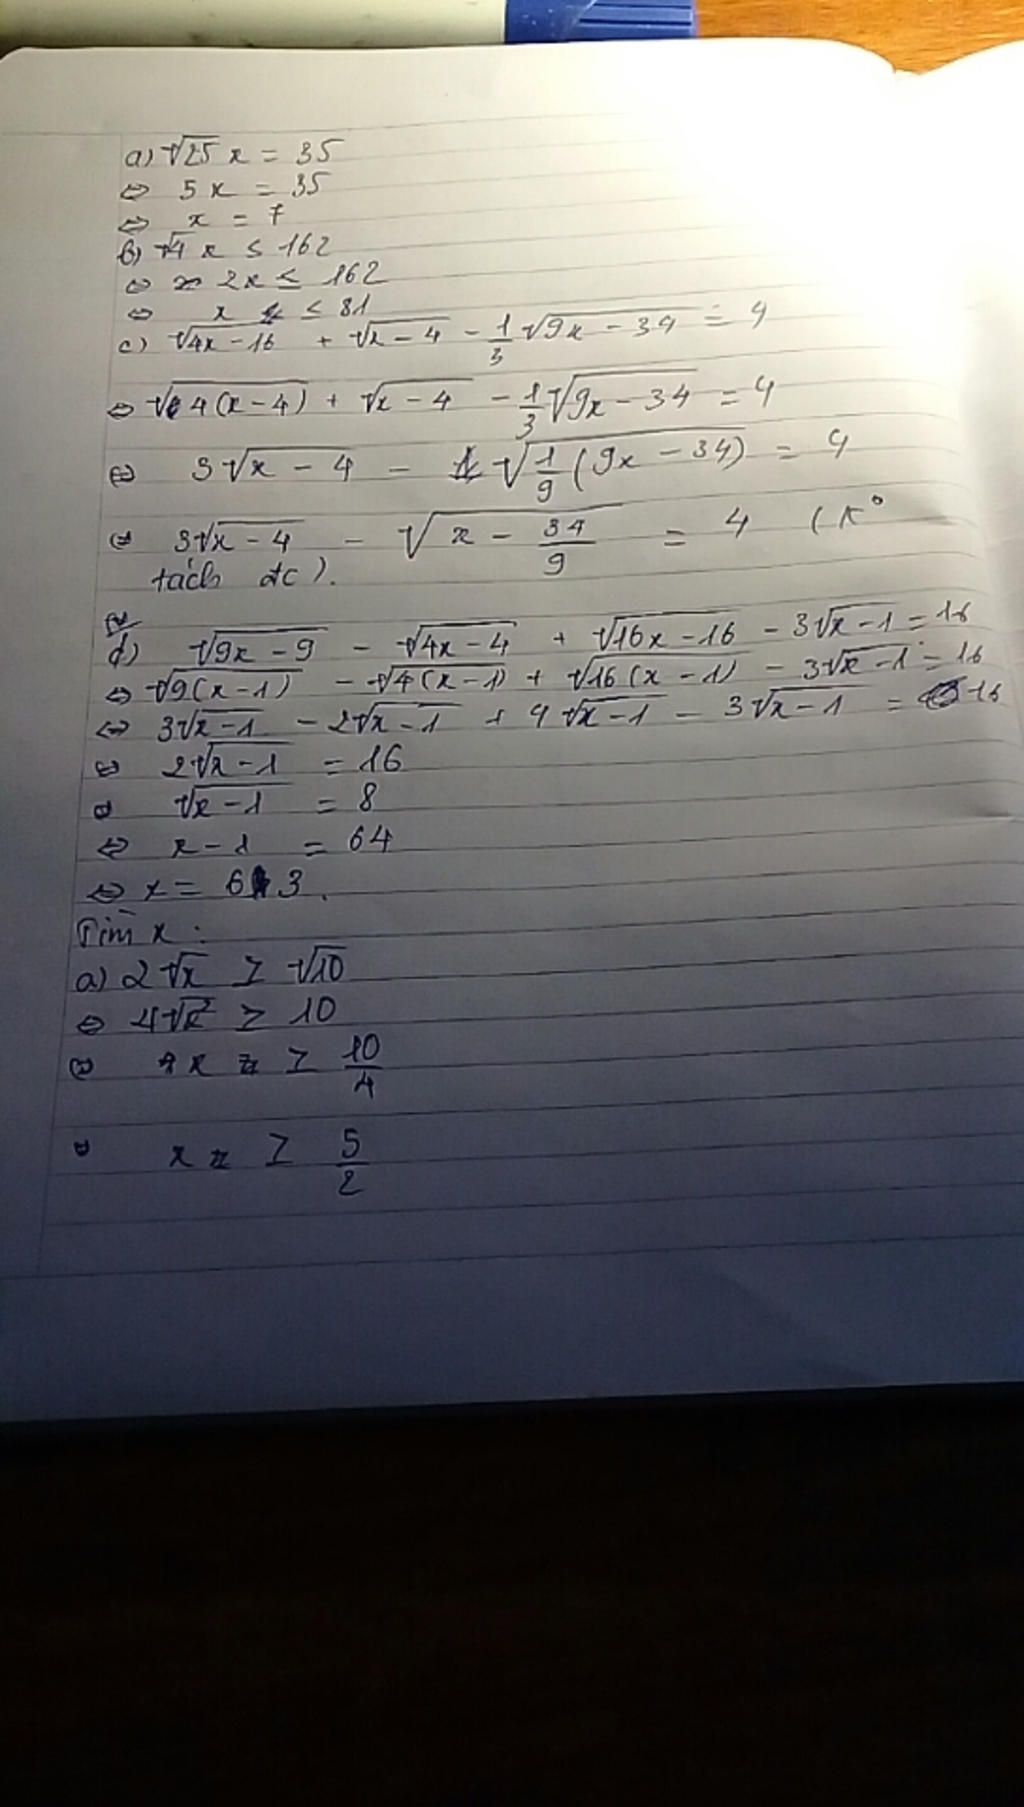 a) √25 x = 35
⇔ 5x = 35
⇔ x = 7
b) √4 x ≤ 162
⇔ 2x ≤ 162
⇔ x ≤ 81
c) √(4x - 16) + √(x - 4) - 1/3 √(9x - 34) = 4
⇔ √(4(x - 4)) + √(x - 4) - 1/3 √(9x - 34) = 4
⇔ 3√(x - 4) - √(1/9 (9x - 34)) = 4
⇔ 3√(x - 4) - √(x - 34/9) = 4 (K°
tách đc).
d) √(9x - 9) - √(4x - 4) + √(16x - 16) - 3√(x - 1) = 16
⇔ √(9(x - 1)) - √(4(x - 1)) + √(16(x - 1)) - 3√(x - 1) = 16
⇔ 3√(x - 1) - 2√(x - 1) + 4√(x - 1) - 3√(x - 1) = 16
⇔ 2√(x - 1) = 16
⇔ √(x - 1) = 8
⇔ x - 1 = 64
⇔ x = 63.
Tìm x :
a) 2√x ≥ √10
⇔ 4√x² ≥ 10
⇔ x ≥ 10/4
⇔ x ≥ 5/2